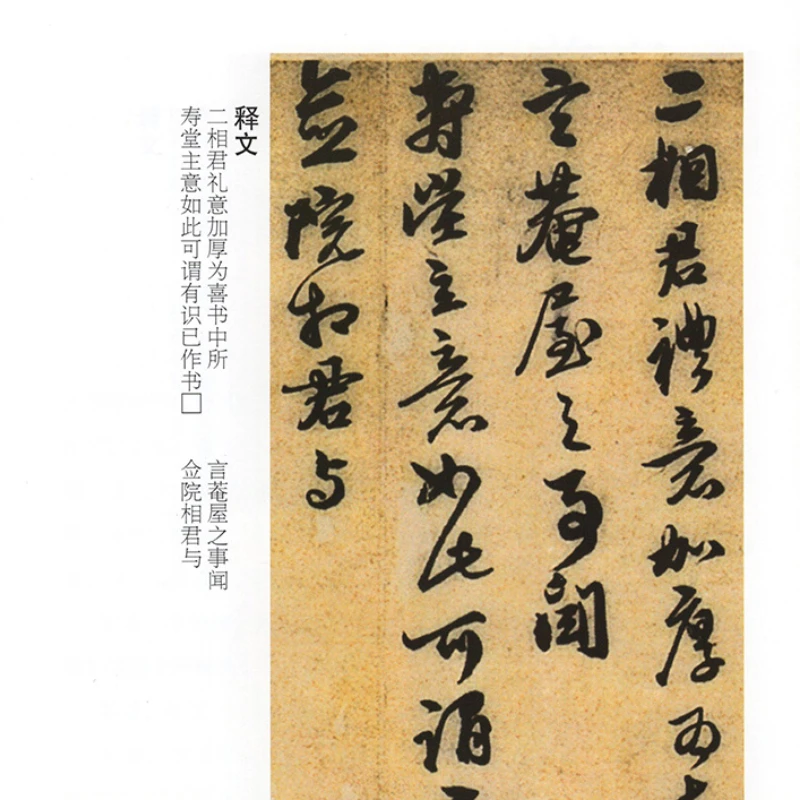 二相君禮意加厚为
言菴屋之事聞
壽堂主意如此可謂
僉院相君与
释文
二相君礼意加厚为喜书中所
言菴屋之事闻
寿堂主意如此可谓有识已作书□
佥院相君与